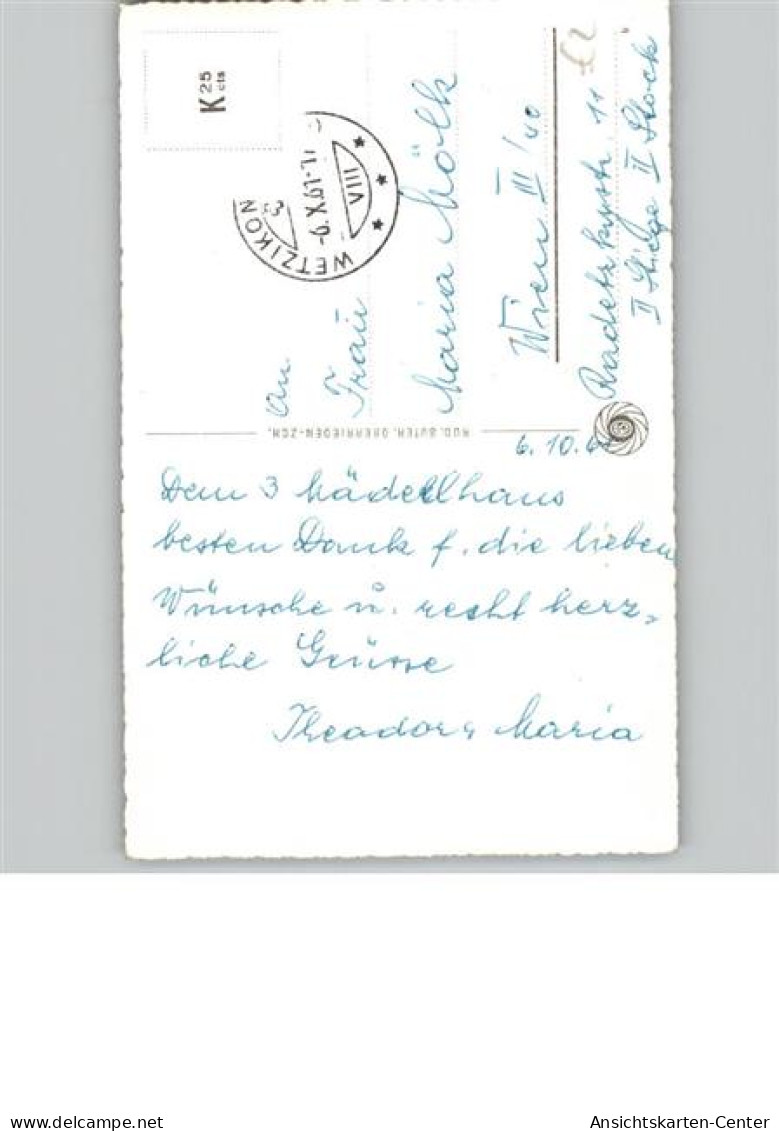 K 25
cts
WETZIKON
-6.X.61-11
VIII
An
Frau
Maria Mölk
Wien III/40
Radetzkystr 11
II Stiege II Stock
RUD. SUTER, OBERRIEDEN-ZCH.
6. 10. 61
Dem 3 Mädellhaus
besten Dank f. die lieben
Wünsche u. recht herz-
liche Grüsse
Theodor & Maria
delcampe.net
Ansichtskarten-Center